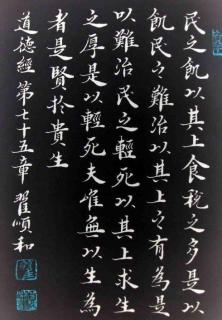 民之飢以其上食税之多是以
飢民之難治以其上之有為是
以難治民之輕死以其上求生
之厚是以輕死夫唯無以生為
者是賢於貴生
道德經第七十五章 翟順和